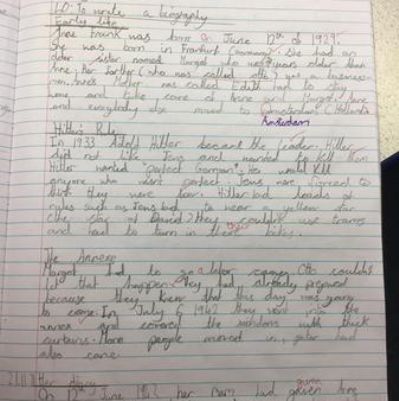 LO: To write a biography
Early life
Anne Frank was born on June 12th of 1929.
She was born in Frankfurt (Germany). She had an
older sister named Margot who was years older than
Anne. Her Farther (who was called otto) was a business-
man. Anne's Mother was called Edith had to stay
home and take care of Anne and Margot. Anne
and everybody else moved to Amsterdam (Holland).
Amsterdam
Hitler's Rule
In 1933 Adolf Hitler became the leader. Hitler
did not like Jews and wanted to kill them
Hitler wanted "perfect German". He would kill
anyone who wasn't perfect. Jews were
think they were low. Hitler had loads of
rules such as Jews had to wear a yellow star
(the star of David) they couldn't use trams
and had to turn in their bikes.
The Annexe
Margot had to go a labor Otto couldn't
let that happen. They had already prepared
because they knew that this day was going
to come. In July 6 1942 they went into the
annex and covered the windows with thick
curtains. More people moved in,
also came.
Her diary
On 12th June 1942 her Mam had given Anne